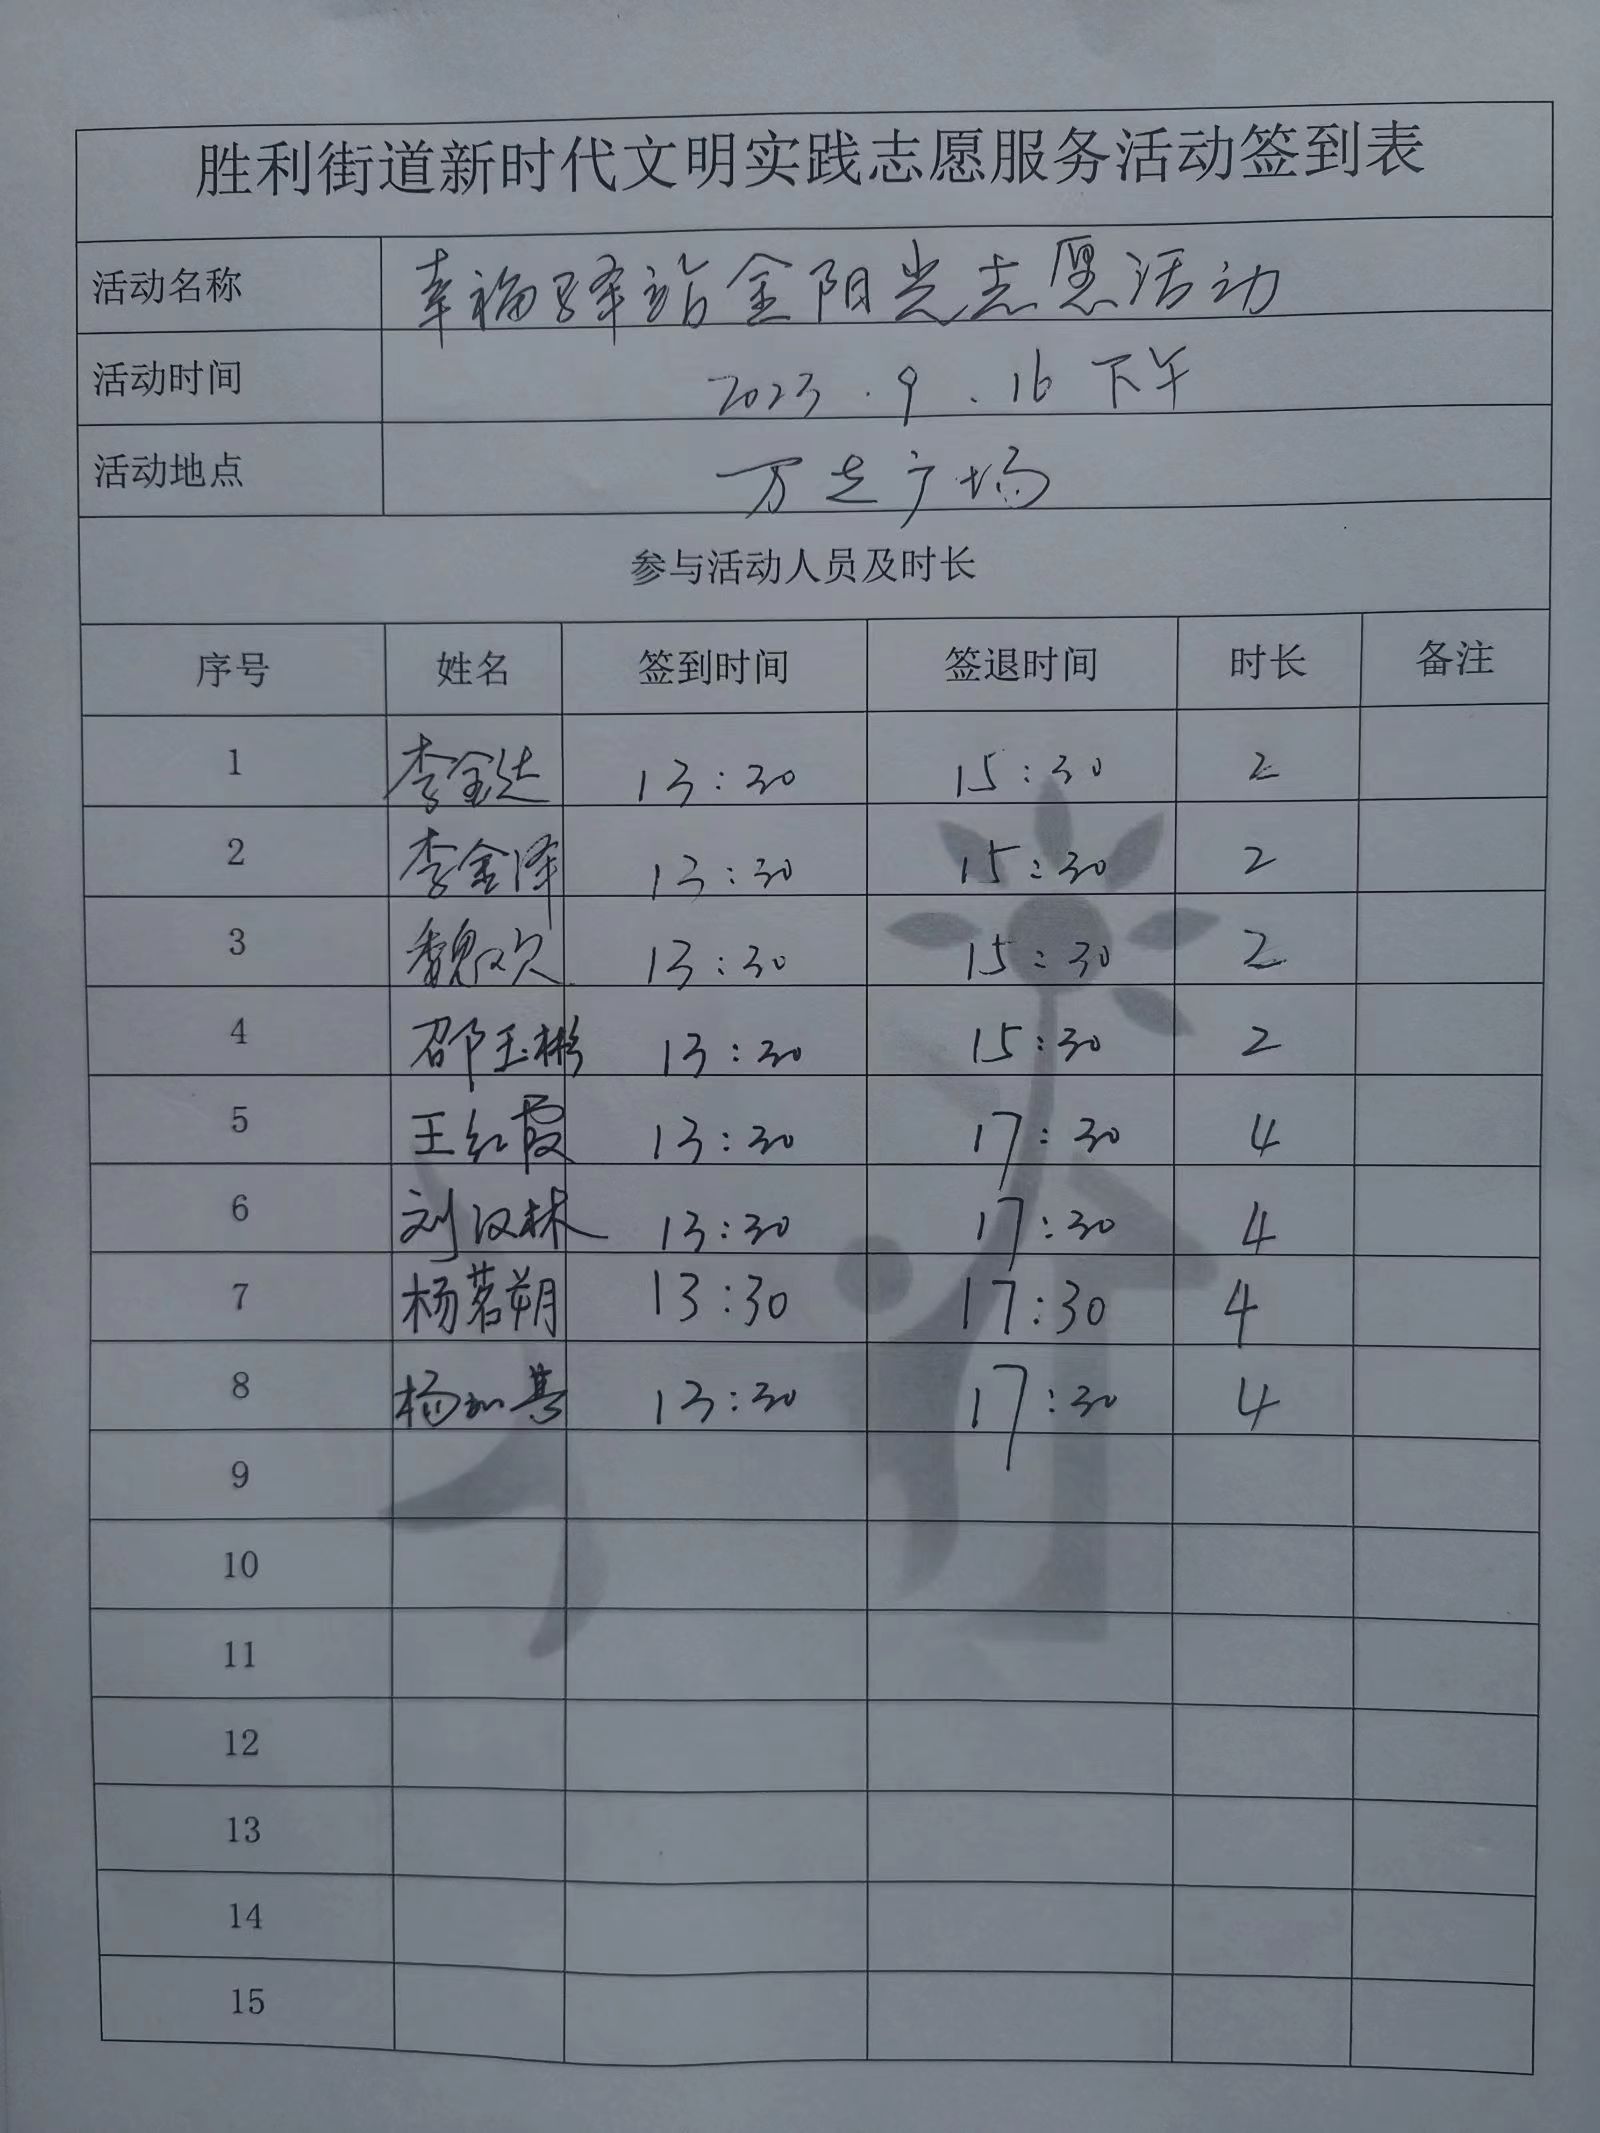 胜利街道新时代文明实践志愿服务活动签到表
活动名称 幸福驿站金阳光志愿活动
活动时间 2023.9.16 下午
活动地点 万达广场
参与活动人员及时长
序号 姓名 签到时间 签退时间 时长 备注
1 李金达 13:30 15:30 2
2 李金泽 13:30 15:30 2
3 魏欢 13:30 15:30 2
4 邵玉彬 13:30 15:30 2
5 王红霞 13:30 17:30 4
6 刘汉林 13:30 17:30 4
7 杨茗朔 13:30 17:30 4
8 杨 13:30 17:30 4
9
10
11
12
13
14
15